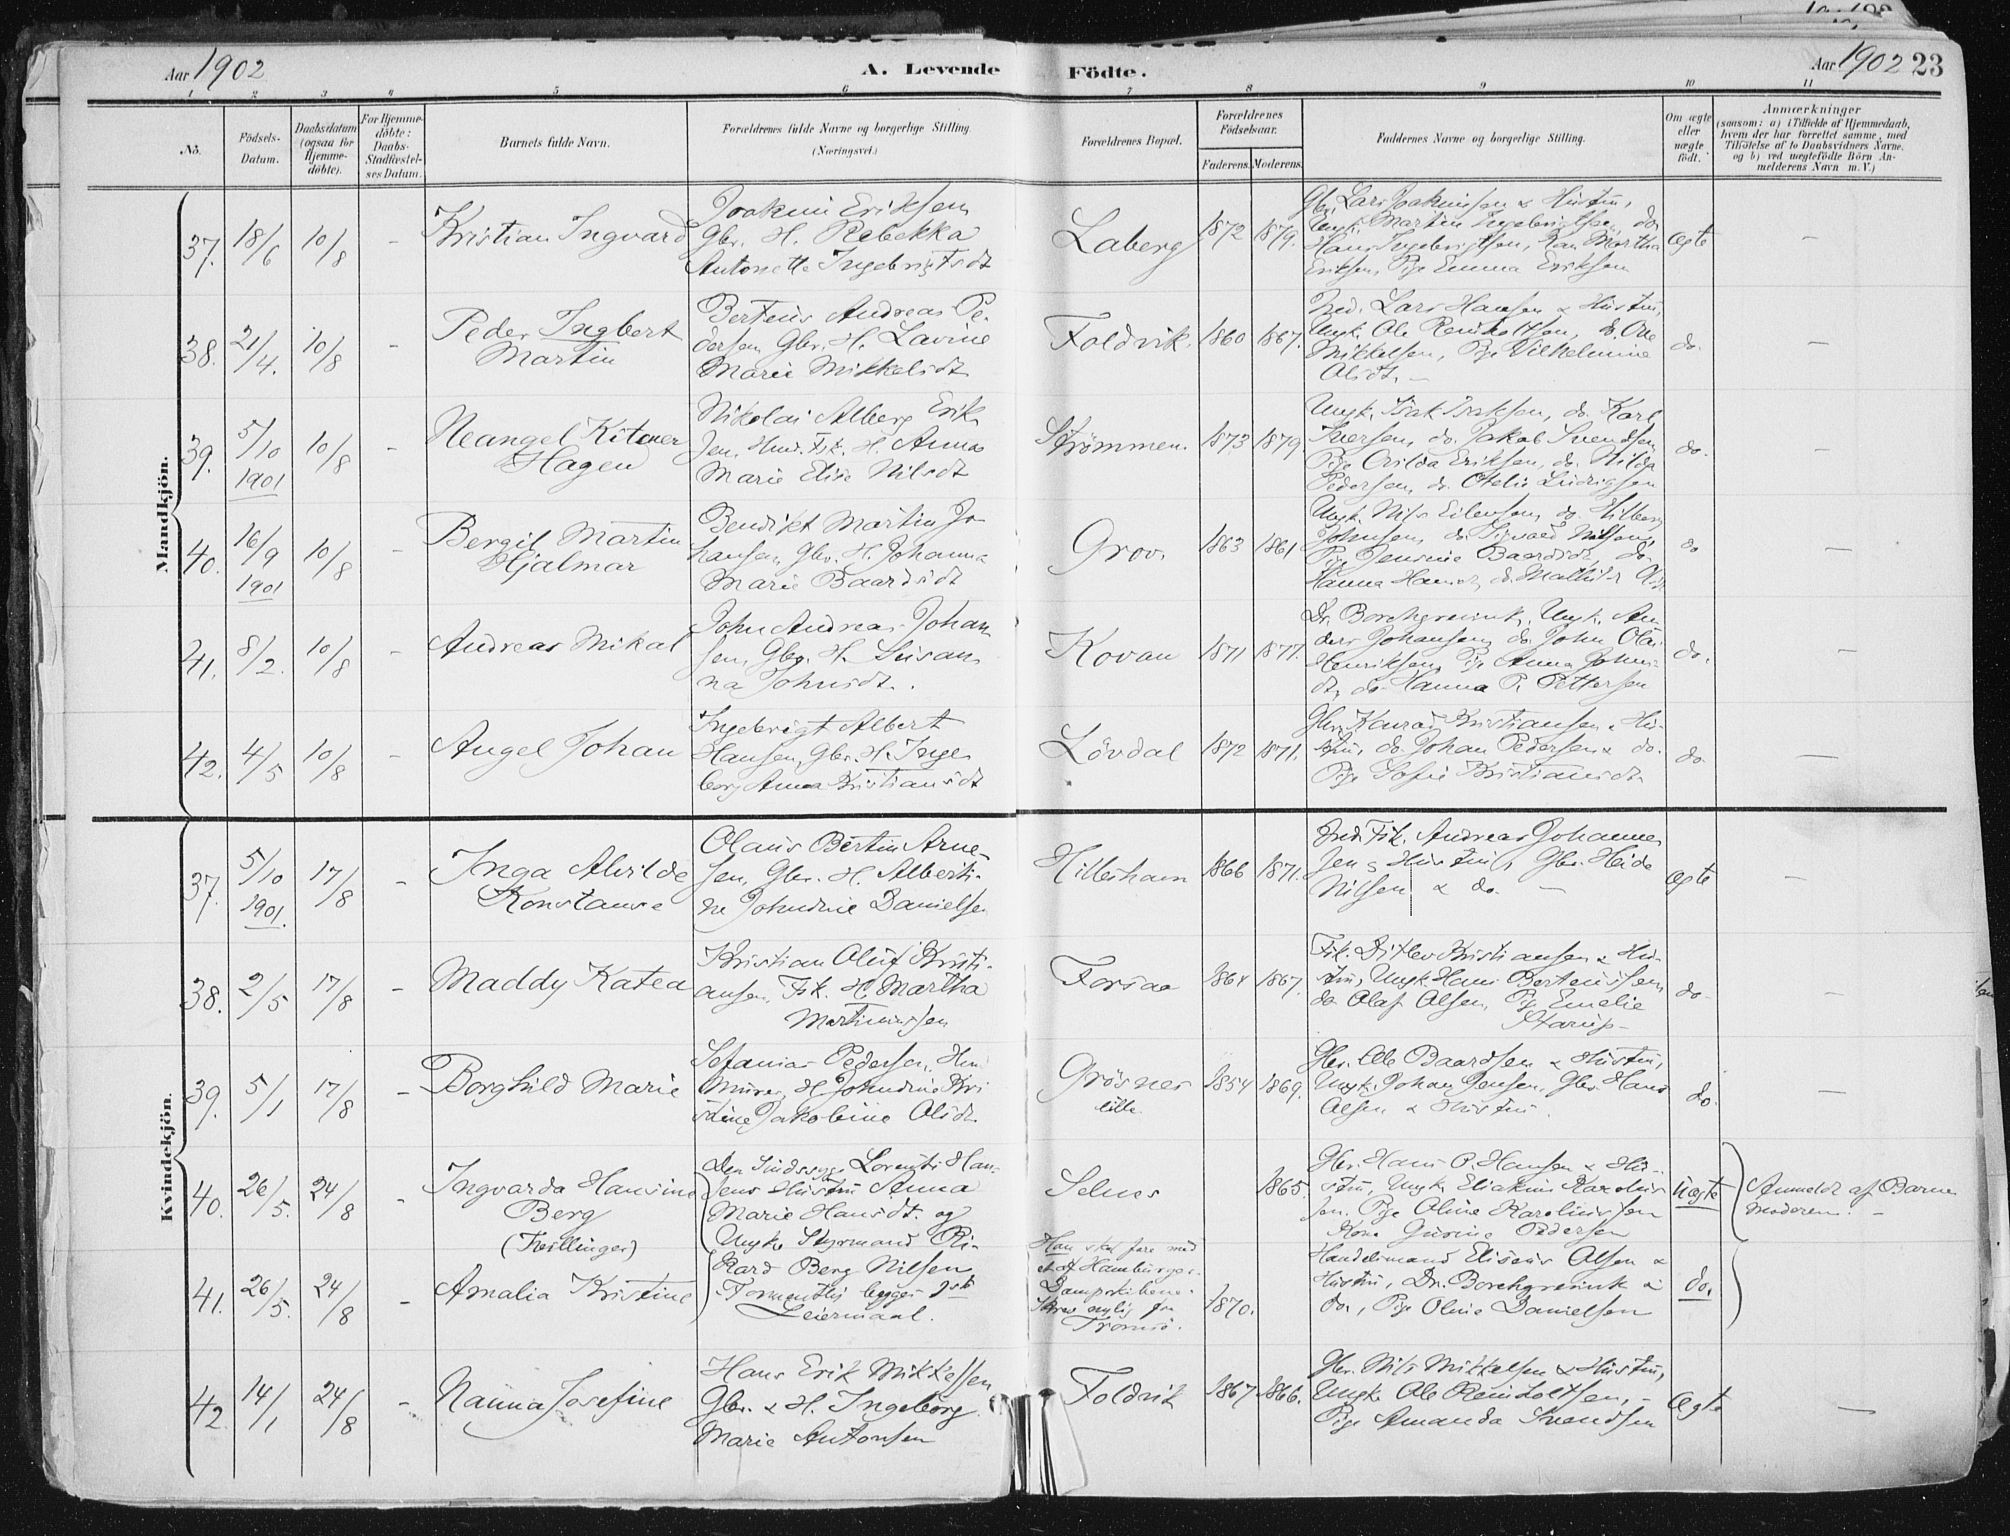 Aar 1902
A. Levende Födte.
Aar 1902 23
1 2 3 4 5 6 7 8 9 10 11
Nō.
Födsels-Datum.
Daabsdatum (ogsaa for Hjemme-döbte).
For Hjemme-döbte: Daabs-Stadfæstel-ses Datum.
Barnets fulde Navn.
Forældrenes fulde Navne og borgerlige Stilling.
(Næringsvei.)
Forældrenes Bopæl.
Forældrenes Födselsaar.
Faderens. Moderens.
Faddernes Navne og borgerlige Stilling.
Om ægte eller uægte födt.
Anmærkninger
(saasom: a) i Tilfælde af Hjemmedaab,
hvem der har forrettet samme, med
Tilföielse af to Daabsvidners Navne,
og b) ved uægtefödte Börn An-
melderens Navn m. V.)
Mandkjön.
37. 18/6 10/8 - Kristian Ingvard
Joakim Eriksen
Gbr. H. Rebekka
Antonette Ingebrigtsdt
Laberg 1872 1879.
Gbr. Lars Joakimsen & Hustru,
Ungk. Martin Ingebrigtsen, do
Hans Ingebrigtsen, Kan Martha
Eriksen, Pige Emma Eriksen
Ægte -
38. 21/4. 10/8 - Peder Ingbert
Martin
Berteus Andreas Pe-
dersen, Gbr. H. Lavine
Marie Mikkelsdt
Foldvik. 1860 1867.
Ind. Lars Hansen & Hustru,
Ungk. Ole Reinholtsen, do Ove
Mikkelsen, Pige Vilhelmine
Olsdt. -
do. -
39. 5/10 1901 10/8 - Neangel Kitener
Hagen
Nikolai Alberg Erik
sen, Hmd. Fsk. H. Anna
Marie Elise Nilsdt
Strömmen. 1873 1879
Ungk. Isak Isaksen, do. Karl
Iversen, do. Jakob Svendsen
Pige Ovilda Eriksen, do. Hilda
Pedersen, do. Otelie Ludrigsen
do. -
40. 16/9 1901 10/8 - Bergit Martin
Hjalmar
Bendikt Martin Jo-
hansen, Gbr. H. Johanna
Marie Baardsdt
Grov. 1863 1861
Ungk. Nils Eilensen, do. Hilberg
Johnsen, do. Sigvard Nilsen,
Pige Jensine Baardsdt, do.
Hanna Hansen, do. Mathilde
do -
41. 8/2. 10/8 - Andreas Mikal
John Andreas Johan
sen, Gbr. H. Susan
na Johnsdt.
Kovan 1871 1877.
Dr. Borchgrevink, Ungk. An
ders Johansen, do. John Olai
Henriksen, Pige Anna Johns-
dt, do Hanna P. Pettersen
do. -
42. 4/5 10/8 - Angel Johan
Ingebrigt Albert
Hansen, Gbr. H. Inge
borg Anna Kristiansdt
Lövdal 1872 1871.
Gbr. Konrad Kristiansen & Hu-
stru, do. Johan Pedersen & do.
Pige Sofie Kristiansdt
do -
Kvindekjön.
37. 5/10 1901. 17/8 - Inga Alvilde
Konstanse
Olaus Bertin Arne-
sen, Gbr. H. Alberti-
ne Johndine Danielsen
Hilleshavn 1866 1871.
Ind. Fsk. Andreas Johanne
sen & Hustru, Gbr. Heide
Nilsen & do. -
Ægte -
38. 2/5 17/8 - Maddy Katea
Kristian Oluf Kristi-
ansen, Fsk. H. Martha
Martinussen
Forsaa 1864 1867.
Fsk. Ditlev Kristiansen & Hu-
stru, Ungk. Hans Berteussen,
do Olaf Olsen, Pige Emelie
Starup-
do. -
39. 5/1 17/8 - Borghild Marie
Sefanias Pedersen, Hm
Murer, H. Johndine Kri
stine Jakobine Olsdt
Grösnes
lille. 1854 1869.
Gbr. Ole Baardsen & Hustru,
Ungk. Johan Jensen, Gbr. Hans
Olsen & Hustru
do. -
40. 26/5. 24/8 - Ingvarda Hansine
Berg
(Tvillinger)
Den Sindssyge Lorents Han-
sens Hustru Anna
Marie Hansdt. og
Ungk. Styrmand Ri-
kard Berg Nilsen
Formentlig begges 1ste
Leiermaal.
Selnes 1865.
Gbr. Hans P. Hansen & Hu-
stru, Ungk. Eliakim Karolius
sen. Pige Oline Karoliussen
Kone Gurine Pedersen
Uægte
Anmeldt af Barne
moderen. -
41. 26/5. 24/8 - Amalia Kristine
Han skal fare med
et af Hamburger-
Dampskibene.
Skrev nylig fra
Tromsö. 1870.
Handelsmand Eliseus Olsen &
Hustru, Dr. Borchgrevink &
do., Pige Oline Danielsen
do.
42 14/1 24/8 - Nanna Josefine
Hans Erik Mikkelsen
Gbr. & H. Ingeborg
Marie Antonsen
Foldvik 1867 1866.
Gbr. Nils Mikkelsen & Hustru,
Ungk. Ole Reinholtsen, -
Pige Amanda Svendsen
Ægte -